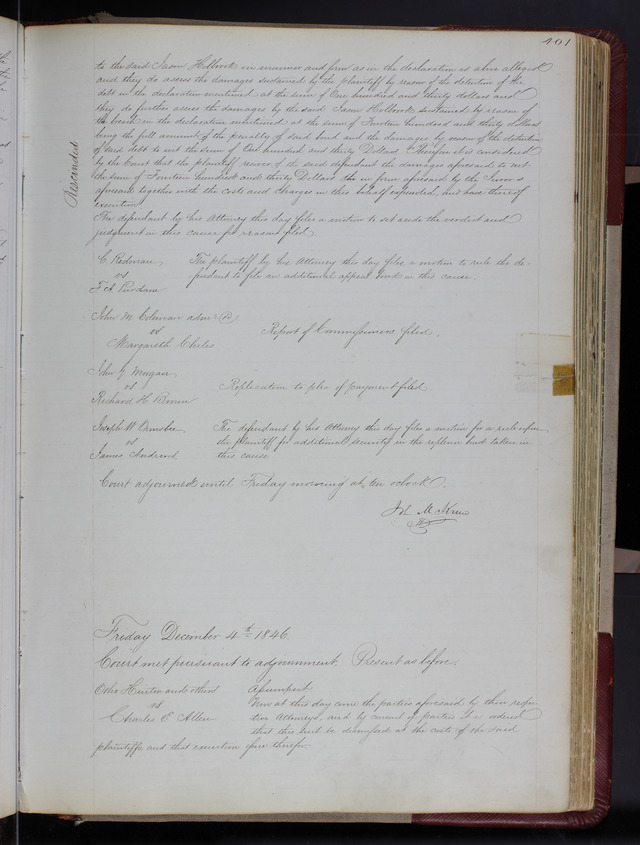 401
to the said Jason Holbrook in manner and form as in the declaration is above alleged
and they do assess the damages sustained by the plaintiff by reason of the detention of the
debt in the declaration mentioned at the sum of One hundred and thirty dollars and
they do further assess the damages by the said Jason Holbrook sustained by reason of
the breach in the declaration mentioned at the sum of Fourteen hundred and thirty dollars
being the full amount of the penalty of said bond and the damages by reason of the detention
of said debt to wit the sum of One hundred and thirty Dollars. Therefore it is considered
by the Court that the plaintiff recover of the said defendant the damages aforesaid to wit
the sum of Fourteen hundred and thirty Dollars in form aforesaid by the Jurors
aforesaid together with the costs and charges in this behalf expended, and have thereof
execution
Rescinded
The defendant by his Attorney this day files a motion to set aside the verdict and
judgment in this cause for reasons filed.
C Redman
vs
The plaintiff by his Attorney this day files a motion to rule the de-
fendant to file an additional appeal bond in this cause.
John M Coleman admr
vs
Margareth Chiles
Report of Commissioners filed.
John J Morgan
vs
Richard H
Replication to plea of payment filed
Joseph W Ormsbee
vs
James Andrew
The defendant by his Attorney this day files a motion for a rule upon
the plaintiff for additional security in the replevin bond taken in
this cause
Court adjourned until Friday morning at ten oclock.
Friday December 4th 1846
Court met pursuant to adjournment. Present as before.
Otho Hinton and others
vs
Charles E Allen
Assumpsit
Now at this day came the parties aforesaid by their respec-
tive Attorneys, and by consent of parties it is ordered
that this suit be dismissed at the costs of the said
plaintiffs, and that execution issue therefor.